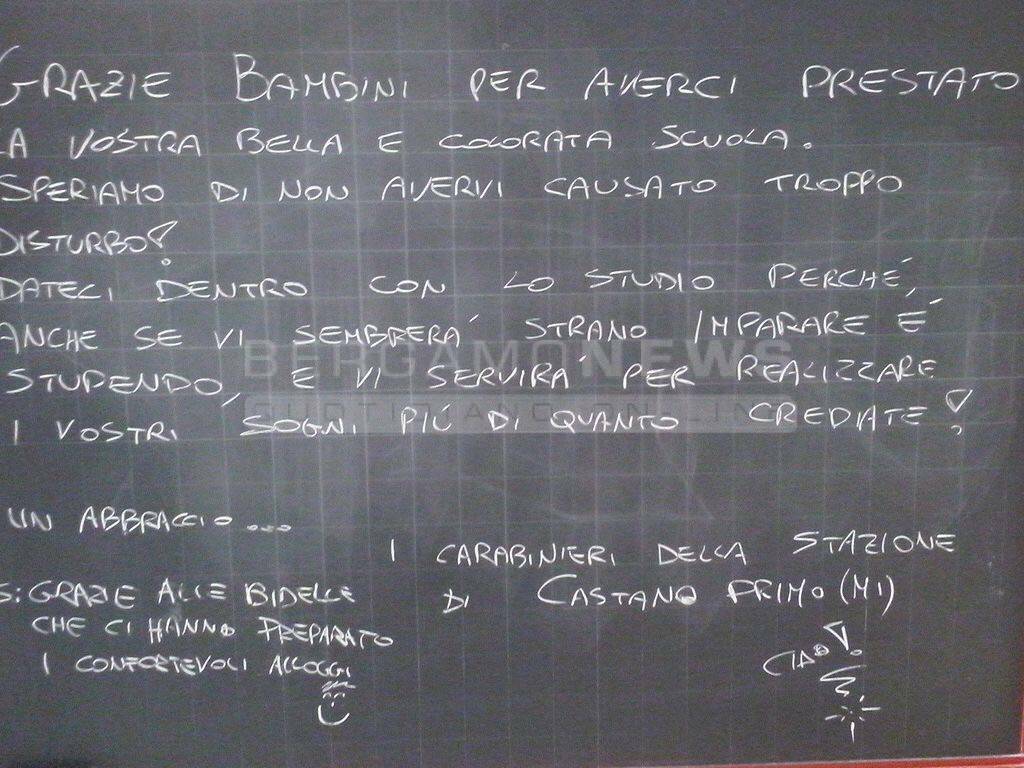 GRAZIE BAMBINI PER AVERCI PRESTATO
LA VOSTRA BELLA E COLORATA SCUOLA.
SPERIAMO DI NON AVERVI CAUSATO TROPPO
DISTURBO!
DATECI DENTRO CON LO STUDIO PERCHÉ,
ANCHE SE VI SEMBRERA´ STRANO IMPARARE É
STUPENDO, E VI SERVIRÁ PER REALIZZARE
I VOSTRI SOGNI PIÚ DI QUANTO CREDIATE!
BERGAMONEWS
QUOTIDIANO ONLINE
UN ABBRACCIO....
I CARABINIERI DELLA STAZIONE
DI CASTANO PRIMO (MI)
S: GRAZIE ALLE BIDELLE
CHE CI HANNO PREPARATO
I CONFORTEVOLI ALLOGGI
CIAO!